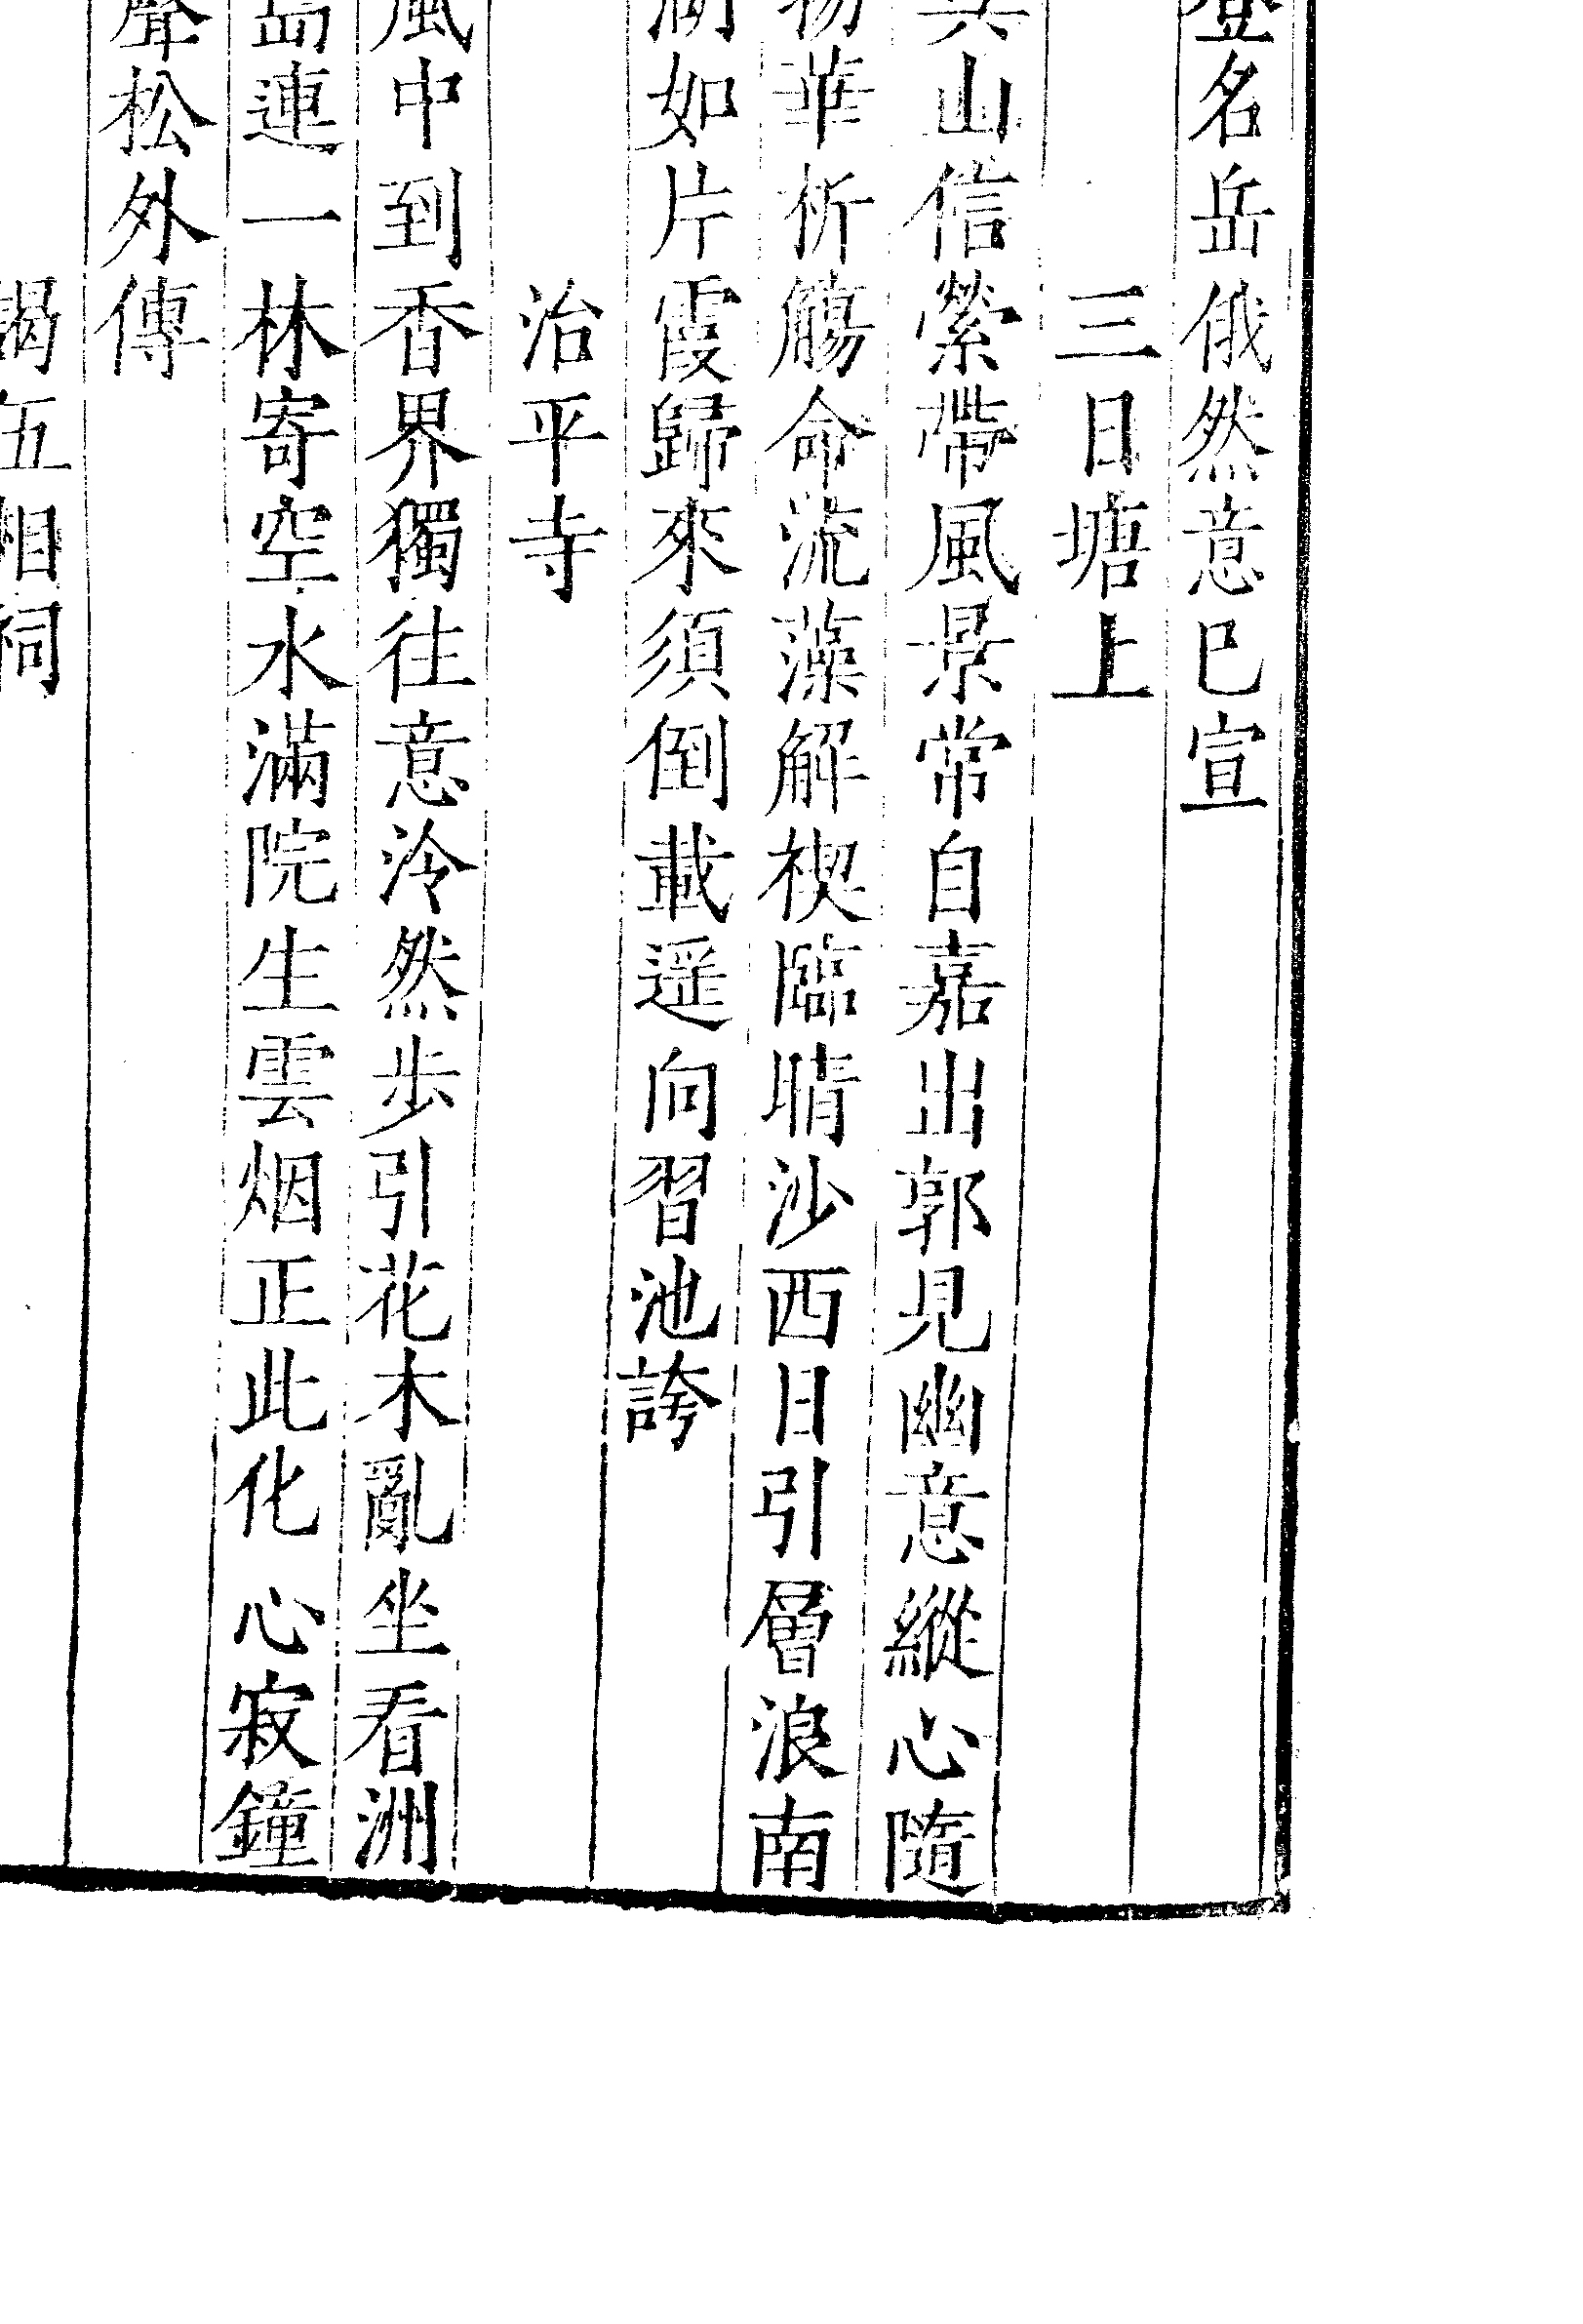 登名岳俄然意已宣
三日塘上
山信縈帶風景常自嘉出郭見幽意縱心隨
物華析觴命流藻解禊臨晴沙西日引層浪南
湖如片霞歸來須倒載遥向習池誇
治平寺
風中到香界獨往意泠然步引花木亂坐看洲
島連一林寄空水滿院生雲烟正此化心寂鐘
聲松外傳
謁伍相祠